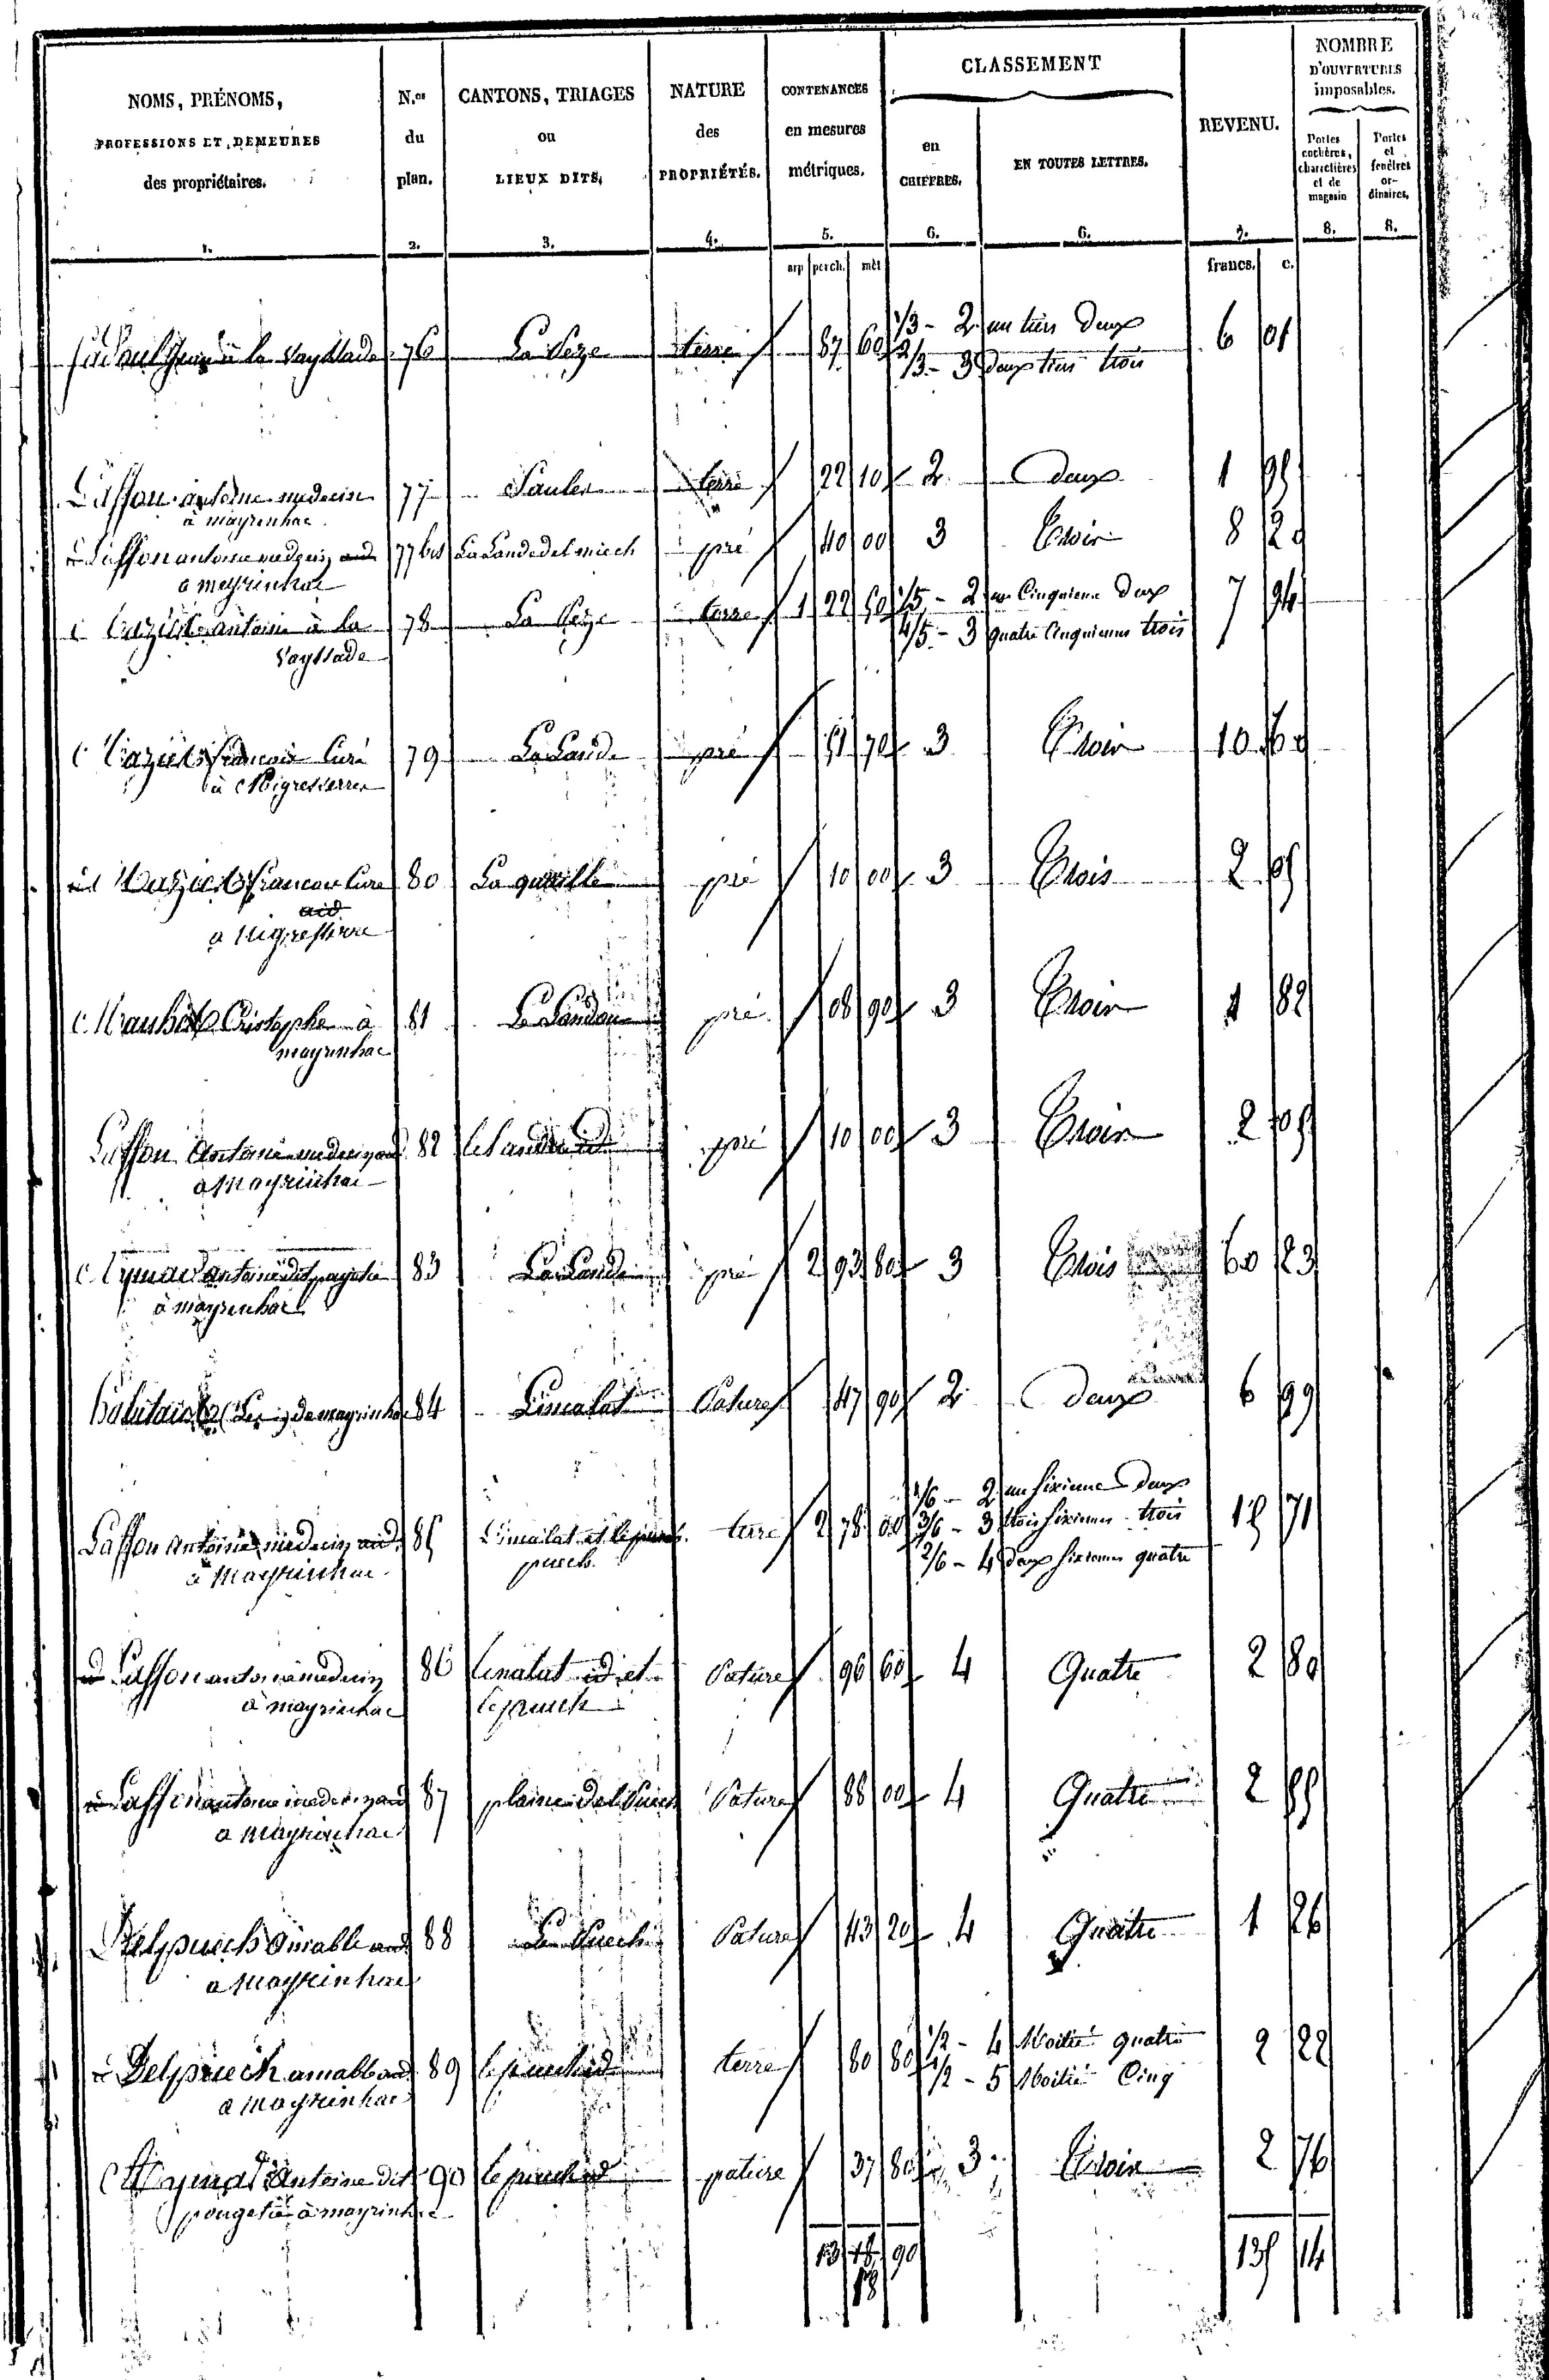 NOMS, PRÉNOMS,
PROFESSIONS ET DEMEURES
des propriétaires.
1.
N.os
du
plan.
2.
CANTONS, TRIAGES
ou
LIEUX DITS.
3.
NATURE
des
PROPRIÉTÉS.
4.
CONTENANCES
en mesures
métriques.
5.
arp perch. mèt
CLASSEMENT
en
CHIFFRES.
6.
EN TOUTES LETTRES.
6.
REVENU.
7.
francs. c.
NOMBRE
D'OUVERTURES
imposables.
Portes
cochères,
charretières
et de
magasin
8.
Portes
et
fenêtres
or-
dinaires.
8.
à la Vayssade 76 La Veze terre 87 60 1/3 - 2 un tiers deux 6 01
2/3 - 3 deux tiers trois
Laffon antoine medecin 77 Saules terre 22 10 2 deux 1 95
à mayrinhac
Laffon antoine medecin 77 bis La Lande del miech pré 40 00 3 Trois 8 20
a meyrinhac
antoine à la 78 La Veze terre 1 22 50 1/5 - 2 un Cinquieme deux 7 94
Vayssade 4/5 - 3 quatre Cinquiemes trois
francois Curé 79 La Lande pré 51 70 3 Trois 10 60
à Nigresserre
francois Cure 80 pré 10 00 3 Trois 2 05
a Nigresserre
Cristophe à 81 pré 08 90 3 Trois 1 82
mayrinhac
Laffon Antoine medecin 82 pré 10 00 3 Trois 2 05
a Mayrinhac
antoine dit 83 La Lande pré 2 93 80 3 Trois 60 23
à mayrinhac
habitants (Les) de mayrinhac 84 Limalat Pature 47 90 2 deux 6 99
1/6 - 2 un sixieme deux
Laffon antoine medecin 85 Limalat et le puech terre 2 78 00 3/6 - 3 trois sixiemes trois 15 71
à Mayrinhac 2/6 - 4 deux sixiemes quatre
Laffon antoine medecin 86 Limalat id et Pature 96 60 4 Quatre 2 80
à mayrinhac le puech
Laffon antoine medecin 87 plaine del Puech Pature 88 00 4 Quatre 2 55
a mayrinhac
Delpuech amable 88 Le Puech Pature 43 20 4 Quatre 1 26
a Mayrinhac
Delpuech amable 89 le puech id terre 80 80 1/2 - 4 Moitié quatre 2 22
a mayrinhac 1/2 - 5 Moitié Cinq
Antoine dit 90 le puech id pature 37 80 3 Trois 2 76
à mayrinhac
13 18 90 135 14